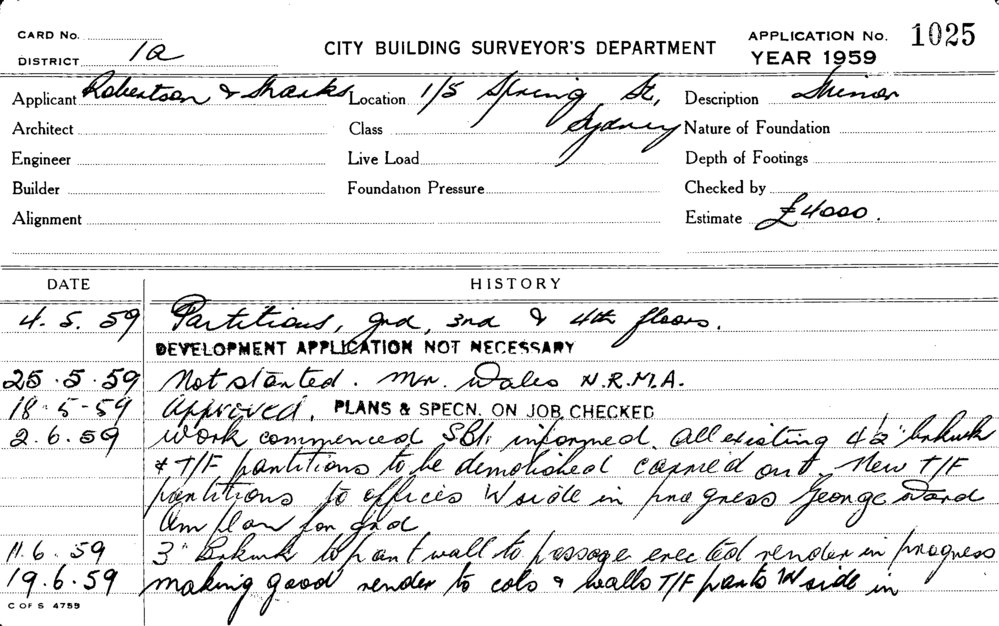 CARD No.
DISTRICT 1a
CITY BUILDING SURVEYOR'S DEPARTMENT
APPLICATION No. 1025
YEAR 1959
Applicant Robertson & Marks Location 1/5 Spring St, Description Minor
Architect Class Sydney Nature of Foundation
Engineer Live Load Depth of Footings
Builder Foundation Pressure Checked by
Alignment Estimate £4000.
DATE HISTORY
4.5.59 Partitions, grd, 3rd & 4th floors.
DEVELOPMENT APPLICATION NOT NECESSARY
25.5.59 Not started. Mr. Wales N.R.M.A.
18-5-59 Approved. PLANS & SPECN. ON JOB CHECKED
2.6.59 Work commenced SBI. informed. All existing 4½" brkwk
& T/F partitions to be demolished carried out. New T/F
partitions to offices W side in progress George Ward
plan for grd
11.6.59 3" Brkwk to part wall to passage erected render in progress
19.6.59 making good render to cols & walls T/F parts W side in
C OF S 4759